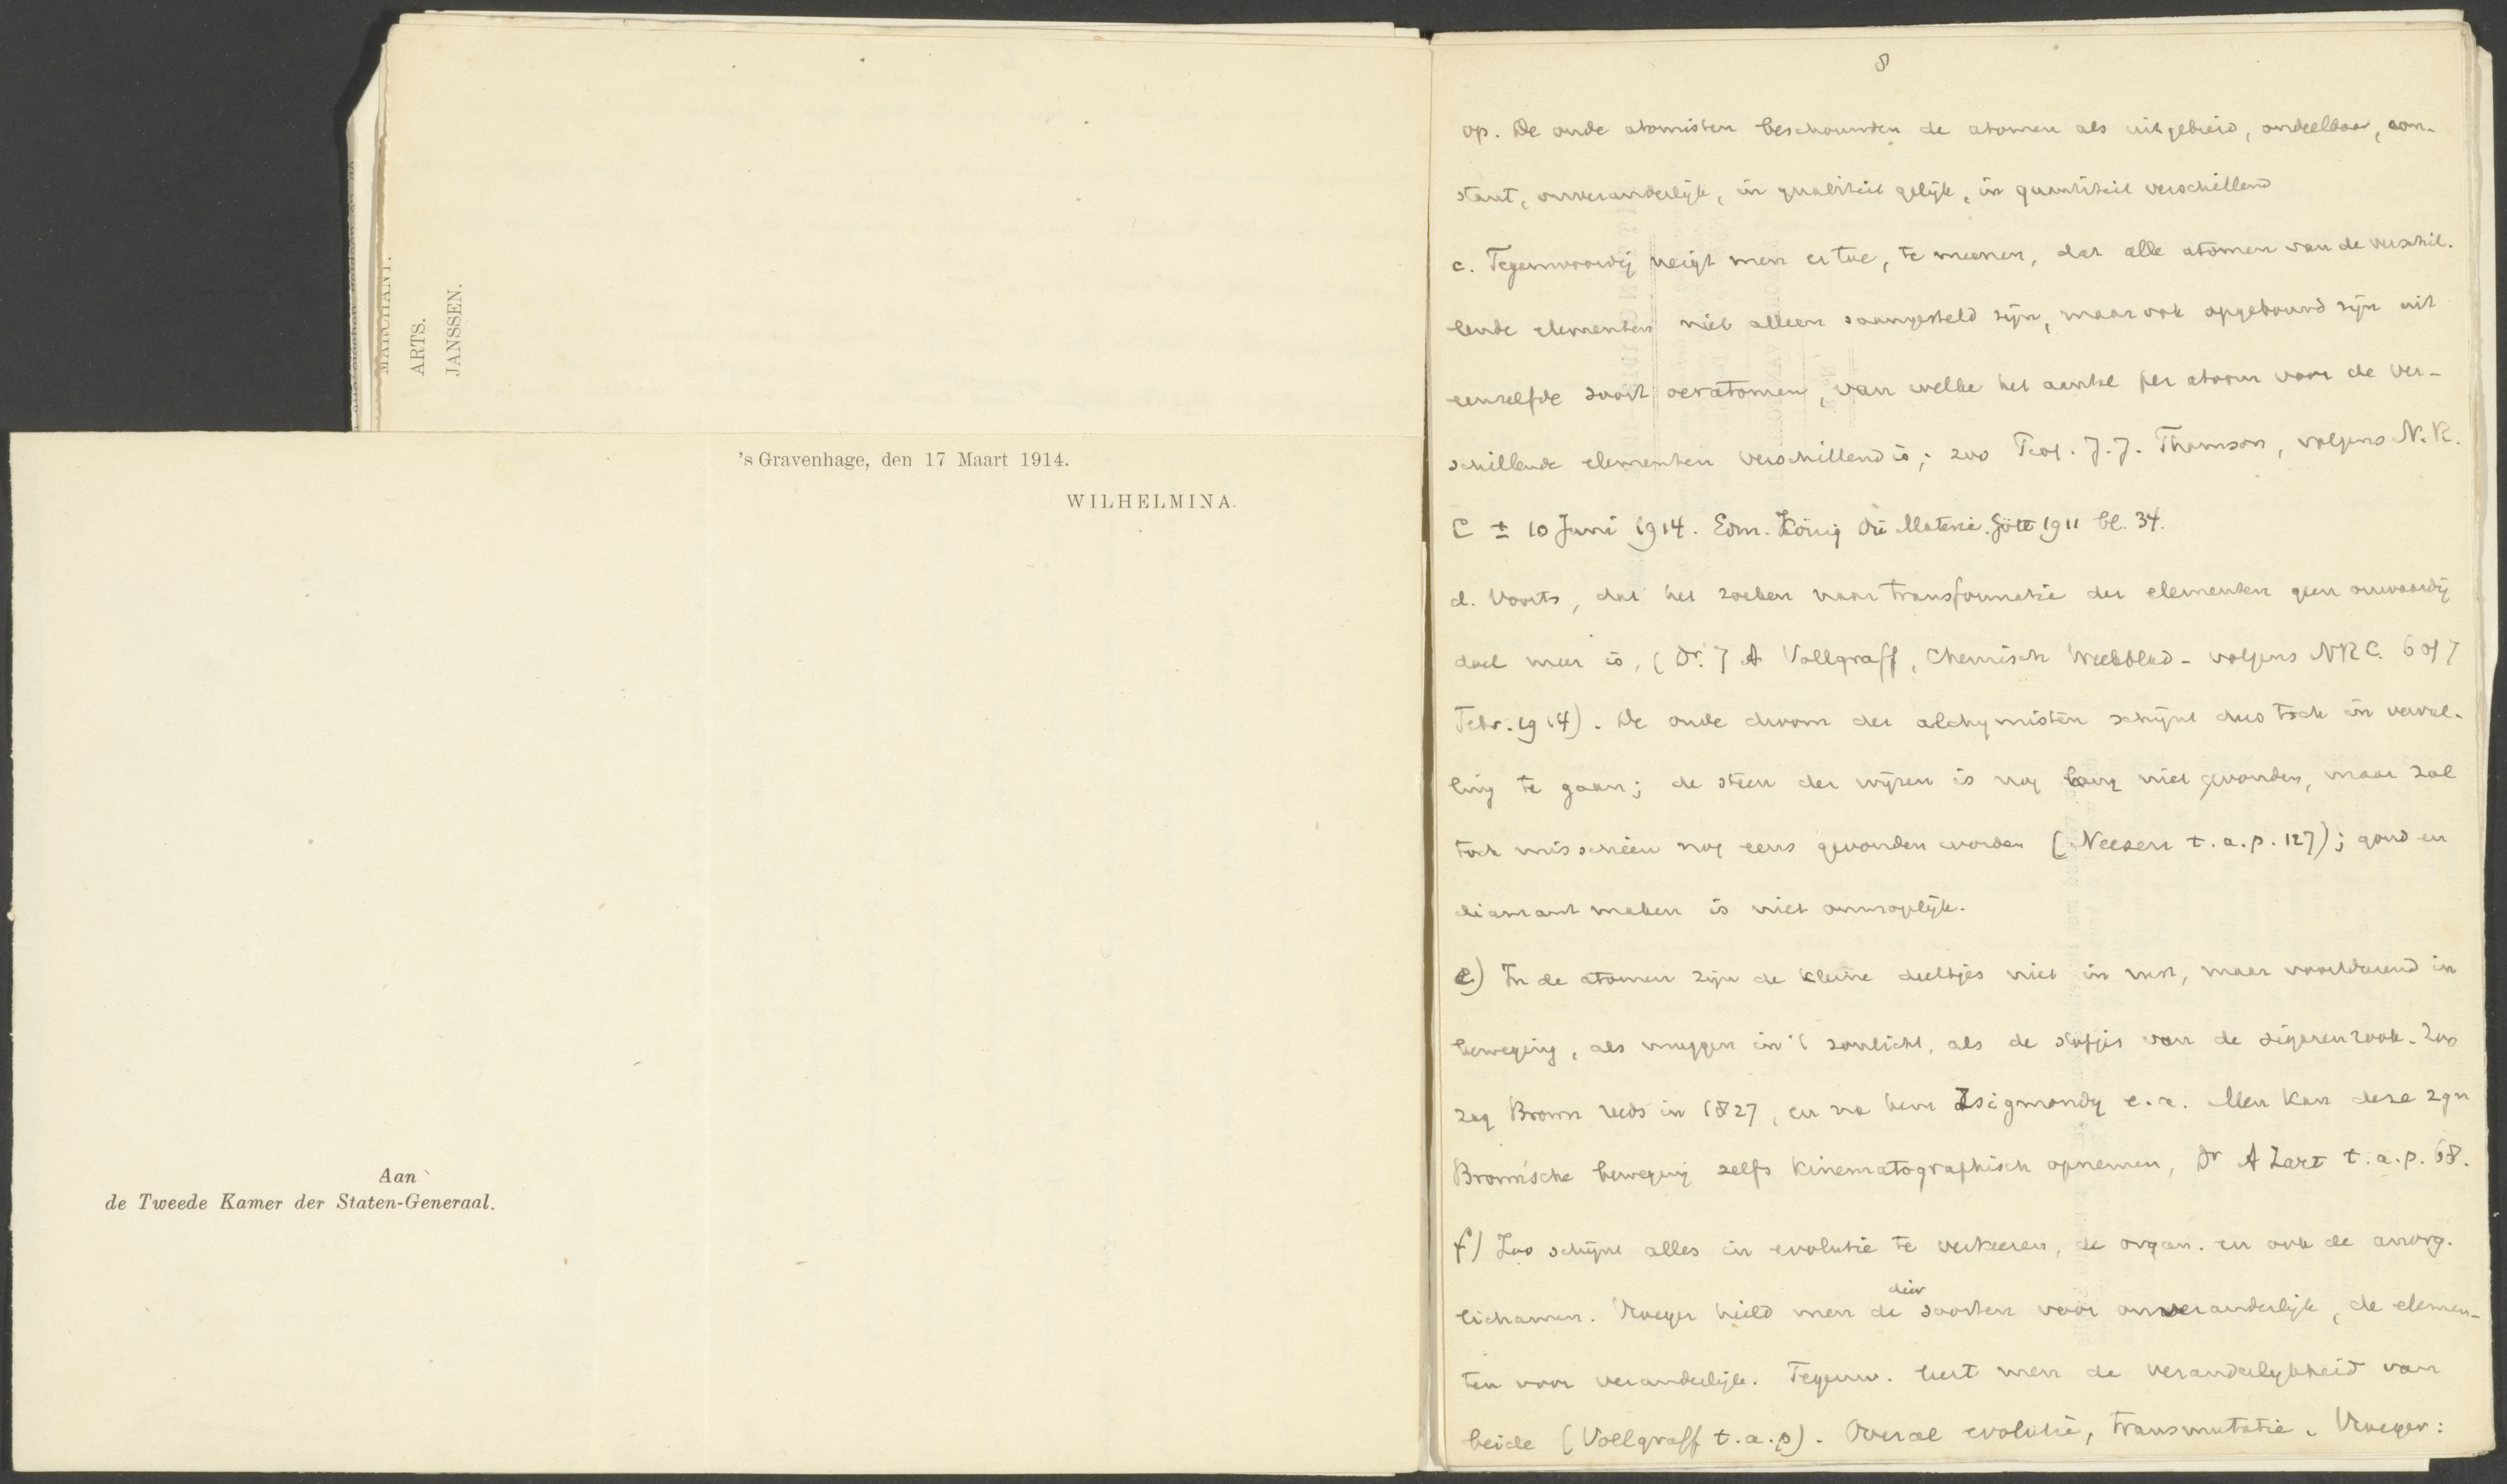 MARCHANT.
ARTS.
JANSSEN.
's Gravenhage, den 17 Maart 1914.
WILHELMINA.
Aan
de Tweede Kamer der Staten-Generaal.
8
op. De oude atomisten beschouwden de atomen als uitgebreid, ondeelbaar, con-
stant, onveranderlijk, in qualiteit gelijk, in quantiteit verschillend
c. Tegenwoordig neigt men er toe, te meenen, dat alle atomen van de verschil-
lende elementen niet alleen saamgesteld zijn, maar ook opgebouwd zijn uit
eenzelfde soort oeratomen, van welke het aantal per atoom voor de ver-
schillende elementen verschillend is; zoo Prof. J. J. Thomson, volgens N. R.
C ± 10 Juni 1914. Edm. König Die Materie. Gött 1911 bl. 34.
d. Voorts, dat het zoeken naar transformatie der elementen geen onwaardig
doel meer is, (Dr. J A Vollgraff, Chemisch Weekblad - volgens NRC. 6 of 7
Febr. 1914). De oude droom der alchymisten schijnt dus toch in vervul-
ling te gaan; de steen der wijzen is nog lang niet gevonden, maar zal
toch misschien nog eens gevonden worden (Neesen t. a. p. 127); goud en
diamant maken is niet onmogelijk.
e) In de atomen zijn de kleine deeltjes niet in rust, maar voortdurend in
beweging, als muggen in 't zonlicht, als de stofjes van de sigarenrook. Zoo
zag Brown reeds in 1827, en na hem Zsigmondy e. a. Men kan deze zgn
Brown'sche beweging zelfs kinematographisch opnemen, Dr A Zart t. a. p. 68.
f) Zoo schijnt alles in evolutie te verkeeren, de organ. en ook de anorg.
lichamen. Vroeger hield men de diersoorten voor onveranderlijk, de elemen-
ten voor veranderlijk. Tegenw. leert men de veranderlijkheid van
beide (Vollgraff t. a. p). Overal evolutie, transmutatie. Vroeger: